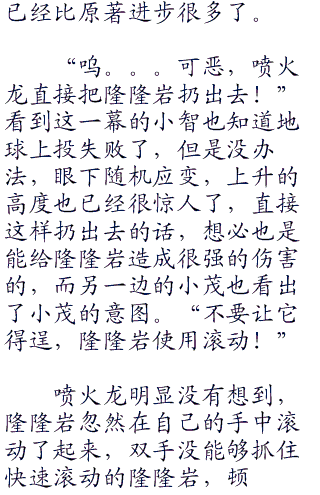 已经比原著进步很多了。
“呜。。。可恶，喷火
龙直接把隆隆岩扔出去！”
看到这一幕的小智也知道地
球上投失败了，但是没办
法，眼下随机应变，上升的
高度也已经很惊人了，直接
这样扔出去的话，想必也是
能给隆隆岩造成很强的伤害
的，而另一边的小茂也看出
了小茂的意图。“不要让它
得逞，隆隆岩使用滚动！”
喷火龙明显没有想到，
隆隆岩忽然在自己的手中滚
动了起来，双手没能够抓住
快速滚动的隆隆岩，顿